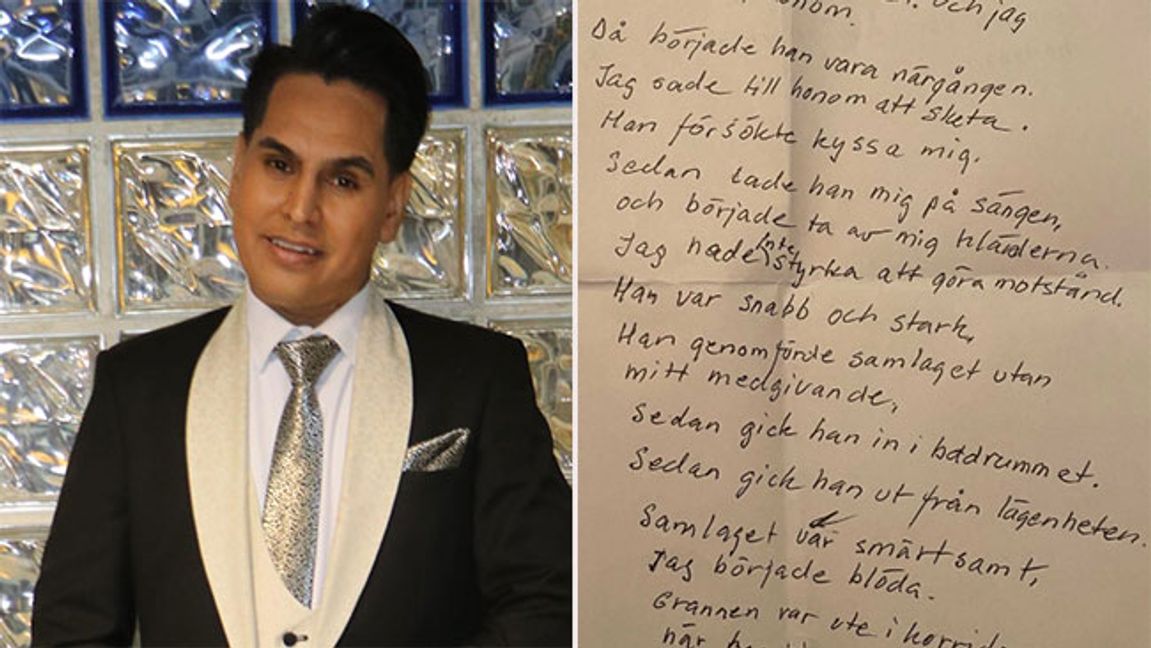 och jag
honom.
Då började han vara närgången.
Jag sade till honom att sluta.
Han försökte kyssa mig.
Sedan lade han mig på sängen,
och började ta av mig kläderna.
Jag hade inte styrka att göra motstånd.
Han var snabb och stark,
Han genomförde samlaget utan
mitt medgivande,
Sedan gick han in i badrummet.
Sedan gick han ut från lägenheten.
Samlaget var smärtsamt,
Jag började blöda.
Grannen var ute i
när